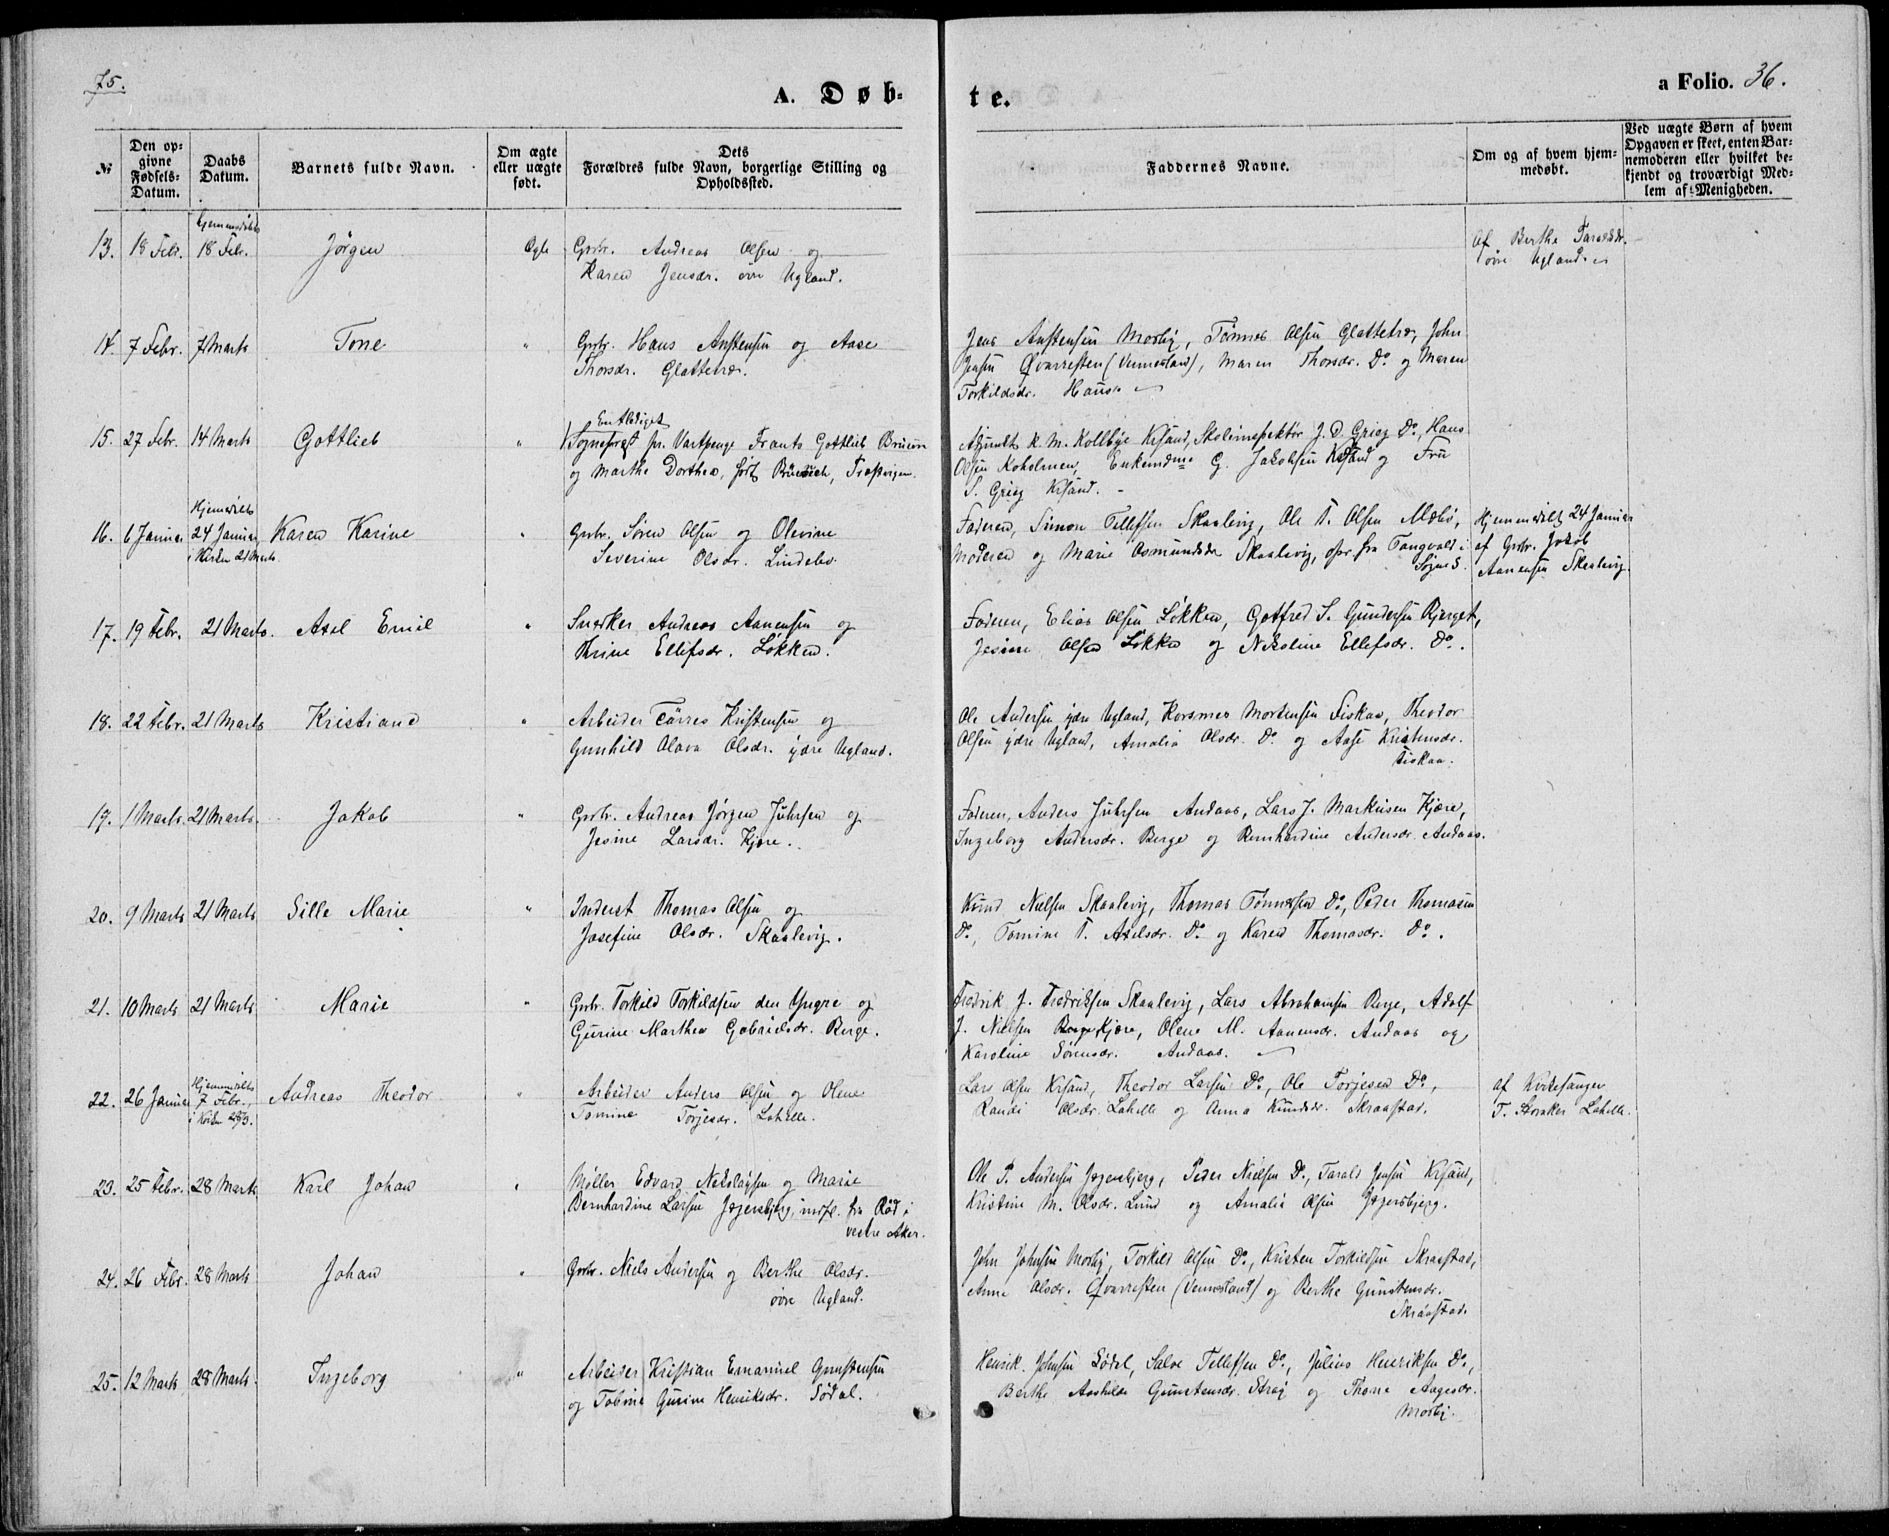 75.
A. Døb-
te.
a Folio. 36.
№
Den op-
givne
Fødsels-
Datum.
Daabs
Datum.
Barnets fulde Navn.
Om ægte
eller uægte
født.
Dets
Forældres fulde Navn, borgerlige Stilling og
Opholdssted.
Faddernes Navne.
Om og af hvem hjem-
medøbt.
Ved uægte Børn af hvem
Opgaven er skeet, enten Bar-
nemoderen eller hvilket be-
kjendt og troværdigt Med-
lem af Menigheden.
13. 18 Febr. 18 Febr. Jörgen Ægte Grbr. Andreas Olsen og
Karen Jensdr. övre Ugland.
Af Berthe Taraldsdr.
övre Ugland.
14. 7 Febr. 7 Marts Tone " Grbr. Hans Anstensen og Aase
Thorsdr. Glattetræ.
Jens Anstensen Mosby, Tönnes Olsen Glattetræ, John
Jensen Qvarresten (Vennesland), Maren Thorsdr. Do og Maren
Torkildsdr. Haus
15. 27 Febr. 14 Marts Gottlieb " Entlediget
Sognepræst for Vartpenge Frants Gottlieb Bruun
og Marthe Dorthea, født
Adjunkt K. M. Kollbye Krsand, Skoleinspektör J. D. Grieg Do, Hans
Olsen Koholmen, Enkemadme G. Jakobsen Krsand og Fru
S. Grieg Krsand.
16. 6 Januar Hjemmedöbt
24 Januar,
i Kirken 21 Marts Karen Karine " Grbr. Sören Olsen og Olevine
Severine Olsdr. Lindebö
Faderen, Simon Tellefsen Skaalevig, Ole T. Olsen Mæbö,
Moderen og Marie Osmundsdr Skaalevig, opr. fra Tangvald i
Sögne S.
Hjemmedöbt 24 Januar
af Grbr. Jakob
Aanensen Skaalevig.
17. 19 Febr. 21 Marts. Axel Emil " Snedker Andreas Aanensen og
Thrine Ellefsdr. Lökken.
Faderen, Elias Olsen Lökken, Gotfred S. Gundersen Bjerget,
Jesine Olsen Lökken og Nikoline Ellefsdr. Do.
18. 22 Febr. 21 Marts Kristiane " Arbeider Törres Kristensen og
Gunhild Olava Olsdr. ydre Ugland.
Ole Andersen ydre Ugland, Korsmes Mortensen Fiskaa, Theodor
Olsen ydre Ugland, Amalia Olsdr. Do og Aase Kristensdr.
Fiskaa.
19. 1 Marts. 21 Marts. Jakob " Grbr. Andreas Jörgen Juhrsen og
Jesine Larsdr. Kjære.
Faderen, Anders Juhrsen Andaas, Lars J. Markusen Kjære,
Ingeborg Andersdr. Berge og Bernhardine Andersdr. Andaas.
20. 9 Marts 21 Marts Sille Marie " Inderst Thomas Olsen og
Josefine Olsdr. Skaalevig.
Knud Nielsen Skaalevig, Thomas Tönnesen Do, Peder Thomasen
Do, Tomine T. Axelsdr. Do og Karen Thomasdr. Do.
21. 10 Marts 21 Marts Marie " Grbr. Torkild Torkildsen den Yngre og
Gurine Marthea Gabrielsdr. Berge.
Fredrik J. Fredriksen Skaalevig, Lars Abrahamsen Berge, Adolf
J. Nielsen Berge Kjære, Olene M. Aanensdr. Andaas og
Karoline Sörensdr. Andaas.
22. 26 Januar Hjemmedöbt
7 Febr.,
i Kirken 28/3. Andreas Theodor " Arbeider Anders Olsen og Olene
Tomine Torjesdr. Lahelle.
Lars Olsen Krsand, Theodor Larsen Do, Ole Torjesen Do,
Randi Olsdr. Lahelle og Anna Knudsdr. Skraastad.
af Kirkesanger
T. Storaker Lahelle.
23. 25 Febr. 28 Marts Karl Johan " Möller Edvard Nikolaysen og Marie
Bernhardine Larsen Jegersbjerg, indfl. fra Röd i
vestre Aker.
Ole P. Andersen Jegersbjerg, Peder Nielsen Do, Tarald Jensen Krsand,
Kristine M. Olsdr. Lund og Amalia Olsen Jegersbjerg.
24. 26 Febr. 28 Marts Johan " Grbr. Niels Andersen og Berthe Olsdr.
övre Ugland.
John Johnsen Mosby, Torkild Olsen Do, Kristen Torkildsen Skraastad,
Anne Olsdr. Qvarresten (Vennesland) og Berthe Gunstensdr.
Skraastad.
25. 12 Marts 28 Marts. Ingeborg " Arbeider Kristian Emanuel Gunstensen
og Tobine Gurine Henriksdr. Södal.
Henrik Johnsen Södal, Salve Tellefsen Do, Julius Henriksen Do,
Berthe Aashilde Gunstensdr. Stray og Thone Aagesdr.
Mosby.